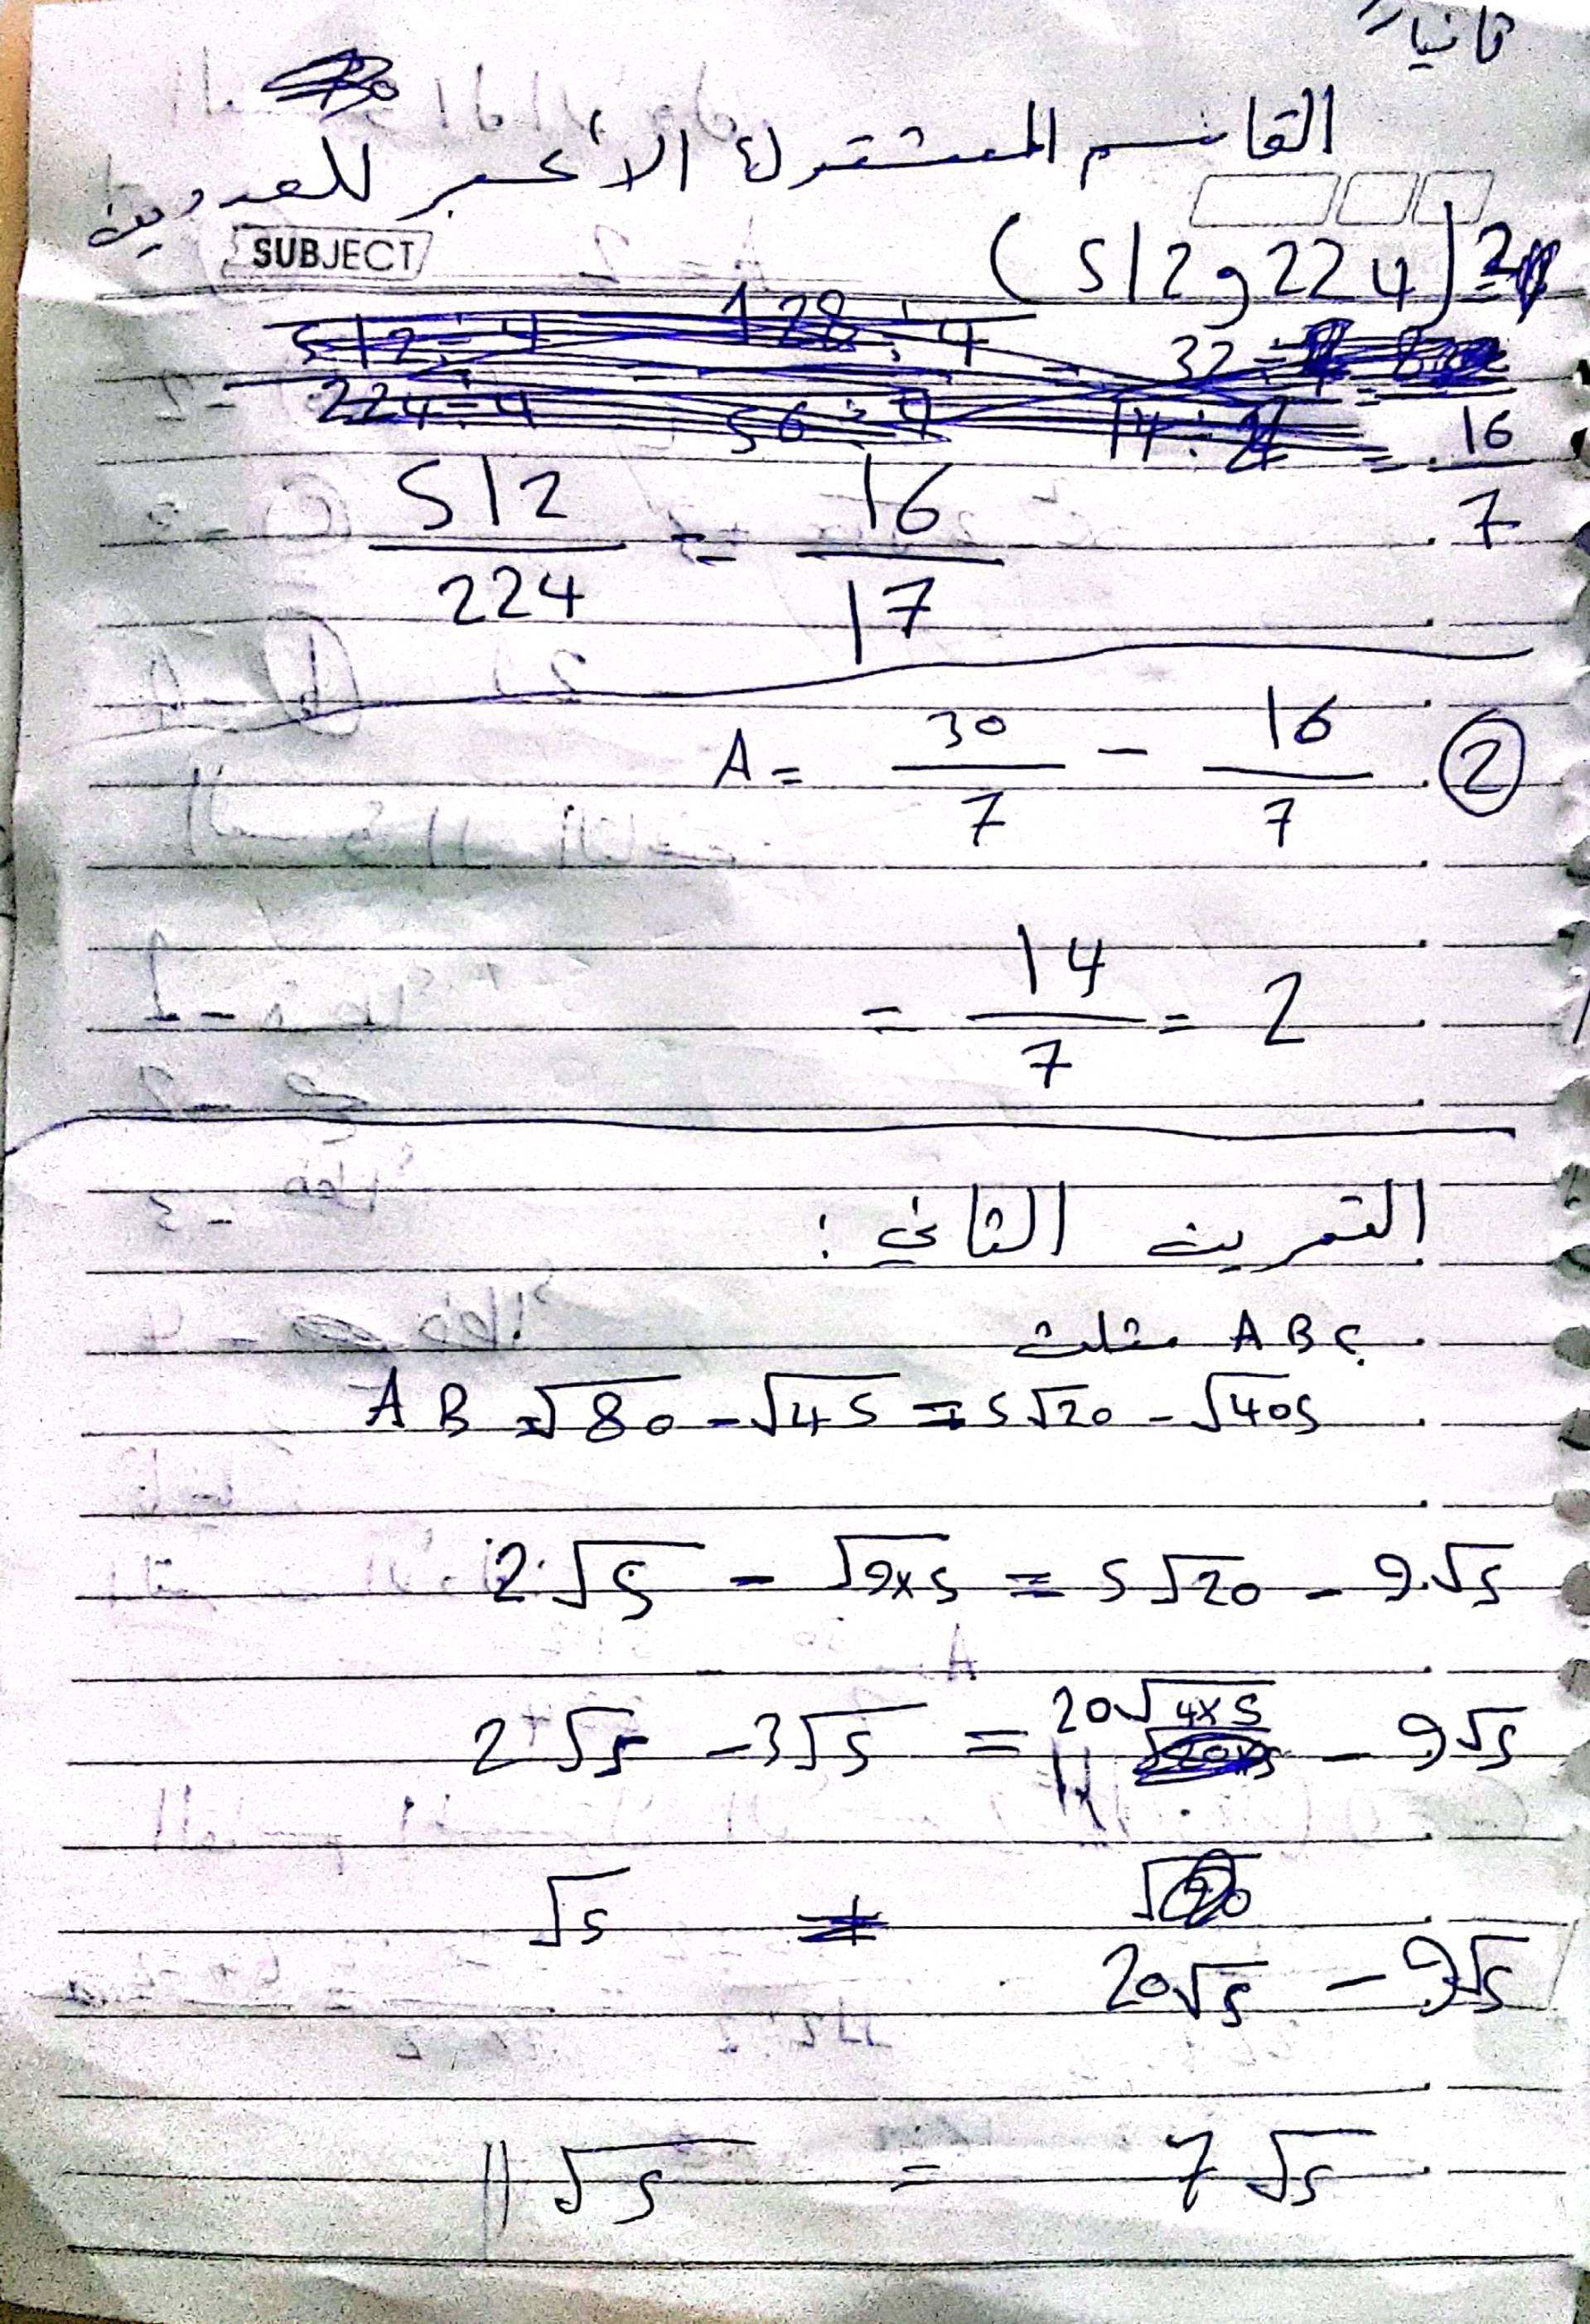 ثانياً
القاسم المشترك الأكبر للعددين
SUBJECT
(512 و 224) 2
512 ÷ 4 128 ÷ 4 = 32 ÷
224 ÷ 4 56 ÷ 4 14 ÷ 2 = 16/7
512/224 = 16/17
② A = 30/7 - 16/7
= 14/7 = 2
التمرين الثاني :
ABC مثلث
AB = √80 - √45 = 5√20 - √405
2√5 - √9x5 = 5√20 - 9.√5
2√5 - 3√5 = 20√4x5 - 9√5
√5
20√5 - 9√5
11√5 = 7√5